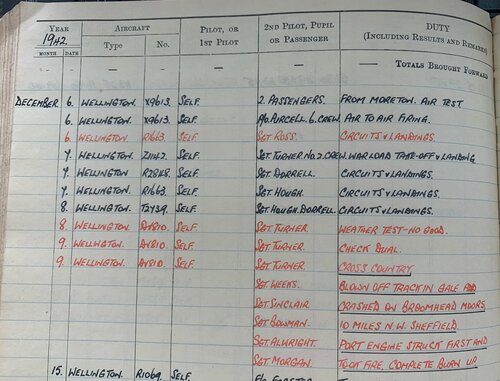 YEAR AIRCRAFT PILOT, OR 2ND PILOT, PUPIL DUTY
1942 1ST PILOT OR PASSENGER (INCLUDING RESULTS AND REMARKS)
MONTH DATE Type No.
— — — — — TOTALS BROUGHT FORWARD
DECEMBER 6. WELLINGTON. X9613. SELF. 2. PASSENGERS. FROM MORETON. AIR TEST
6. WELLINGTON. X9613. SELF. PURCELL. & CREW. AIR TO AIR FIRING.
6. WELLINGTON. R1663. SELF. SGT ROSS. CIRCUITS & LANDINGS.
7. WELLINGTON. Z1142. SELF. SGT TURNER NO.2 CREW. WAR LOAD TAKE-OFF & LANDING
7. WELLINGTON. SELF. SGT. DORRELL. CIRCUITS & LANDINGS.
7. WELLINGTON. R1663. SELF. SGT. HOUGH. CIRCUITS & LANDINGS.
8. WELLINGTON. T2739. SELF. SGT. HOUGH. DORRELL. CIRCUITS & LANDINGS.
8. WELLINGTON. DV810. SELF. SGT. TURNER WEATHER TEST-NO GOOD.
9. WELLINGTON. DV810. SELF. SGT. TURNER. CHECK DUAL.
9. WELLINGTON. DV810. SELF. SGT TURNER. CROSS COUNTRY
SGT WEEKS. BLOWN OFF TRACK IN GALE AND
SGT SINCLAIR CRASHED ON BROOMHEAD MOORS.
SGT BOWMAN. 10 MILES N.W. SHEFFIELD.
SGT. ALLWRIGHT. PORT ENGINE STRUCK FIRST AND
SGT MORGAN. TOOK FIRE. COMPLETE BURN UP
15. WELLINGTON. R1069. SELF.